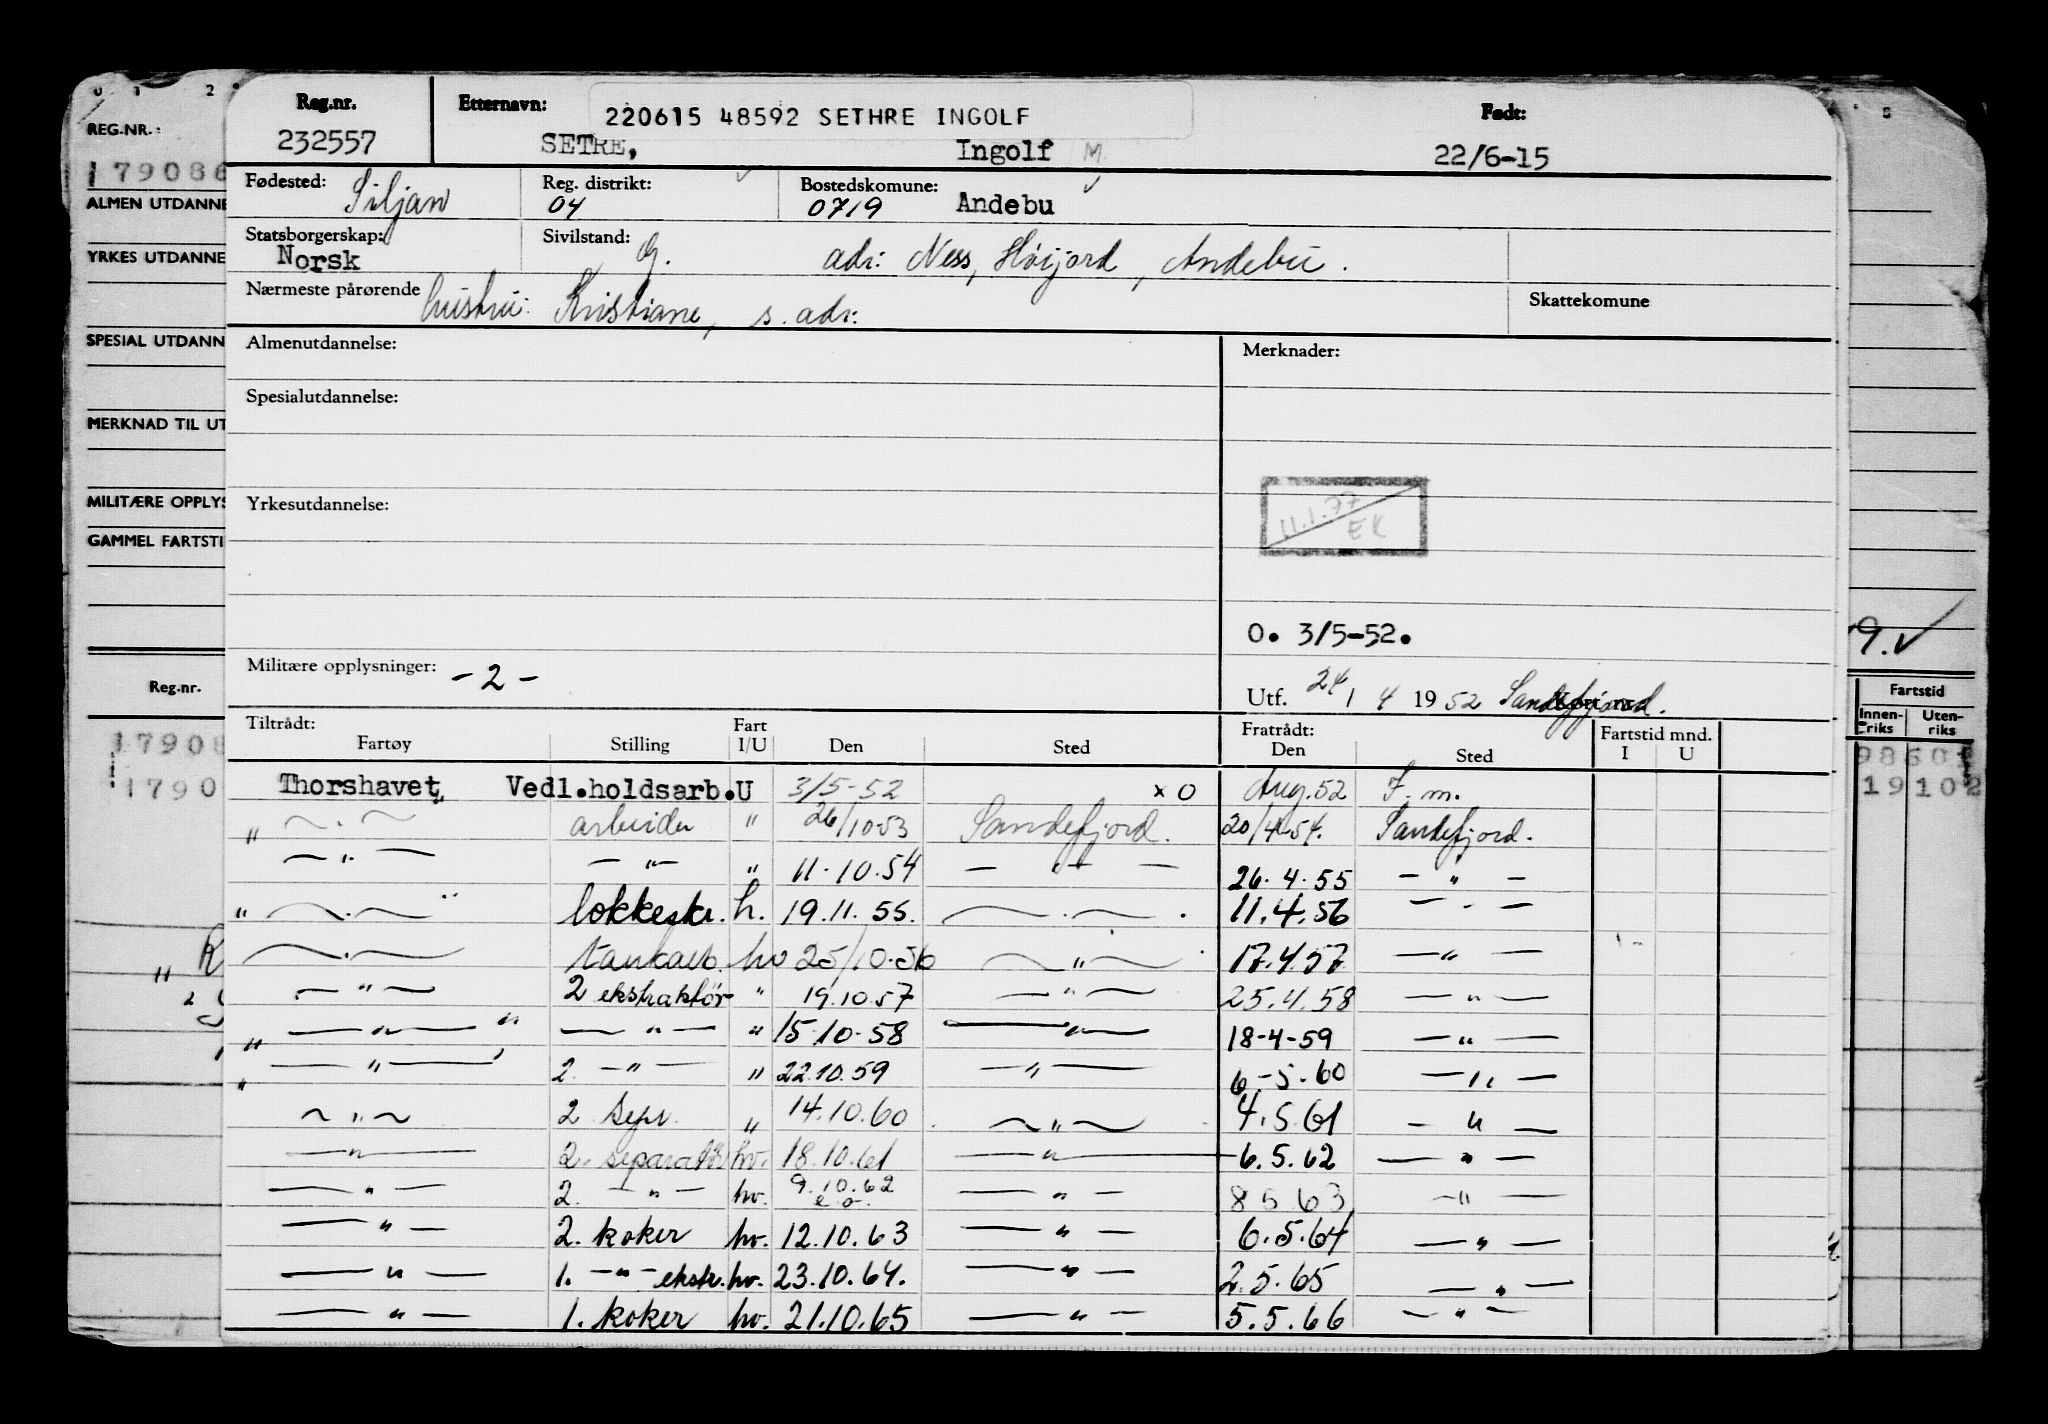 0 1 2
REG.NR.:
179086
ALMEN UTDANNE
YRKES UTDANNE
SPESIAL UTDANN
MERKNAD TIL UT
MILITÆRE OPPLYS
GAMMEL FARTSTI
Reg.nr.
1790
Reg.nr.
232557
Etternavn: 220615 48592 SETHRE INGOLF
SETRE, Ingolf M
Født:
22/6-15
Fødested: Siljan
Reg. distrikt: 04
Bostedskomune: 0719 Andebu
Statsborgerskap: Norsk
Sivilstand: G. adr: Ness, Høijord, Andebu.
Nærmeste pårørende hustru: Kristiane, s. adr:
Skattekomune
Almenutdannelse:
Merknader:
Spesialutdannelse:
Yrkesutdannelse:
11.1.77
EK
O. 3/5-52.
Militære opplysninger: - 2 -
Utf. 24 / 4 1952 Sandefjord.
Tiltrådt: Fart Fratrådt: Fartstid mnd.
Fartøy Stilling I/U Den Sted Den Sted I U
Thorshavet, Vedl.holdsarb. U 3/5-52 x O Aug. 52 F. m.
" — " — arbeider " 26/10-53 Sandefjord. 20/4-54. Sandefjord.
— " — — " — " 11-10.54 — " — 26.4.55 — " —
" — " — " lokkeskr. h. 19.11.55. — " — 11.4.56 — " —
— " — tankarb. hv 25/10.56 — " — 17.4.57 — " —
— " — 2 ekstraktør " 19.10.57 — " — 25.4.58 — " —
" — " — " — " — " 15-10-58 — " — 18-4-59 — " —
" — " — 2. — " — " 22.10.59 — " — 6-5-60 — " —
— " — 2 sepr. " 14.10.60 — " — 4.5.61 — " —
— " — 2. separatør hv. 18.10.61 — " — 6.5.62 — " —
— " — 2. — " — hv. 9.10.62 e.o. — " — 8 5 63 — " —
— " — 2. koker hv. 12.10.63 — " — 6.5.64 — " —
— " — 1. — " — ekstr. hv. 23.10.64. — " — 2.5.65 — " —
— " — 1. koker hv. 21.10.65 — " — 5.5.66 — " —
9. ✓
Fartstid
Innen-riks Uten-riks
19 102